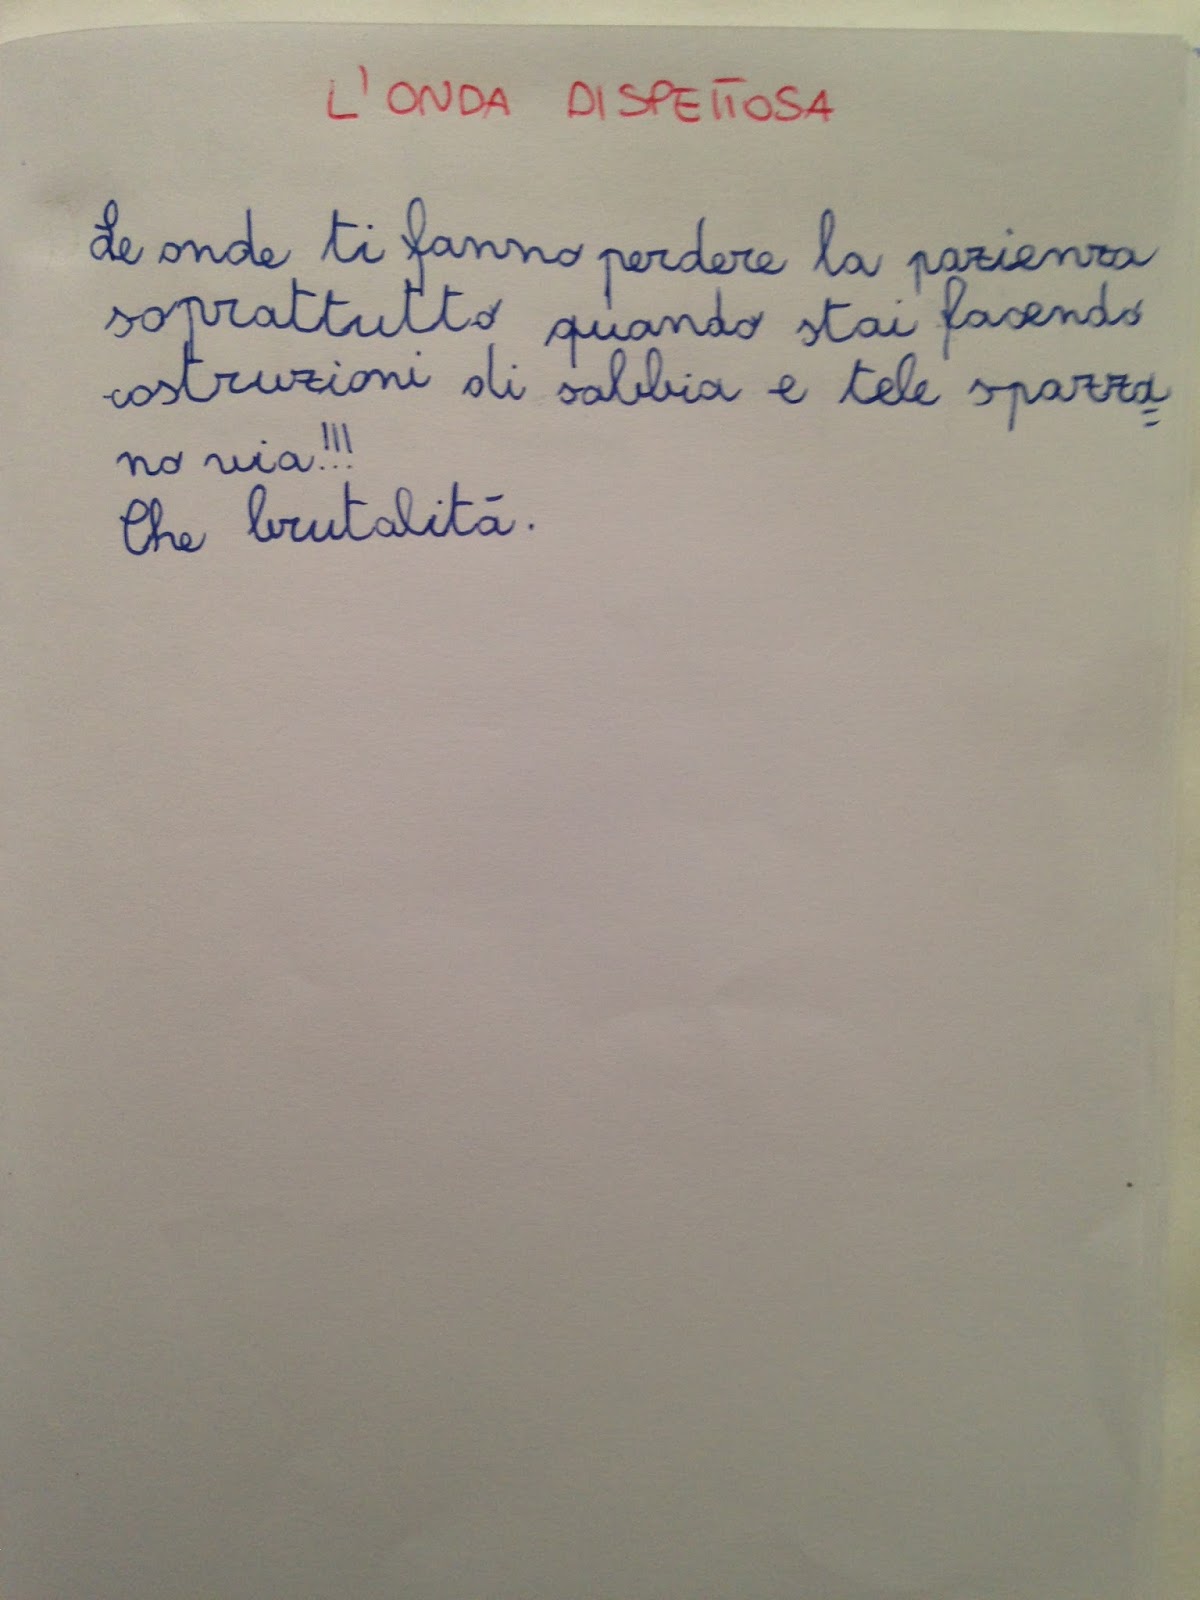 L'ONDA DISPETTOSA
Le onde ti fanno perdere la pazienza
soprattutto quando stai facendo
costruzioni di sabbia e tele spazza=
no via!!!
Che brutalità.